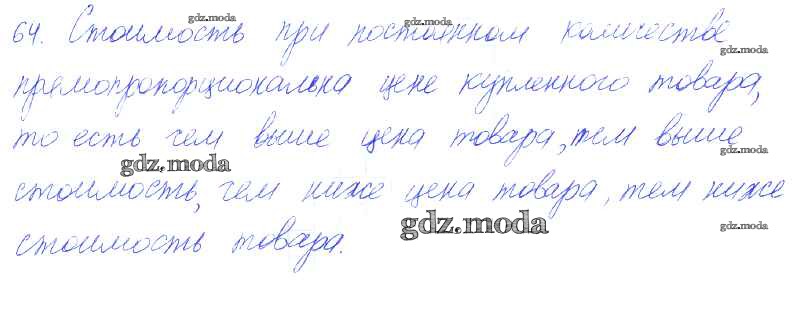 64. Стоимость при постоянном количестве
премопропорциональна цене купленного товара,
то есть чем выше цена товара, тем выше
стоимость, чем ниже цена товара, тем ниже
стоимость товара.
gdz.moda
gdz.moda
gdz.moda
gdz.moda
gdz.moda
gdz.moda
gdz.moda